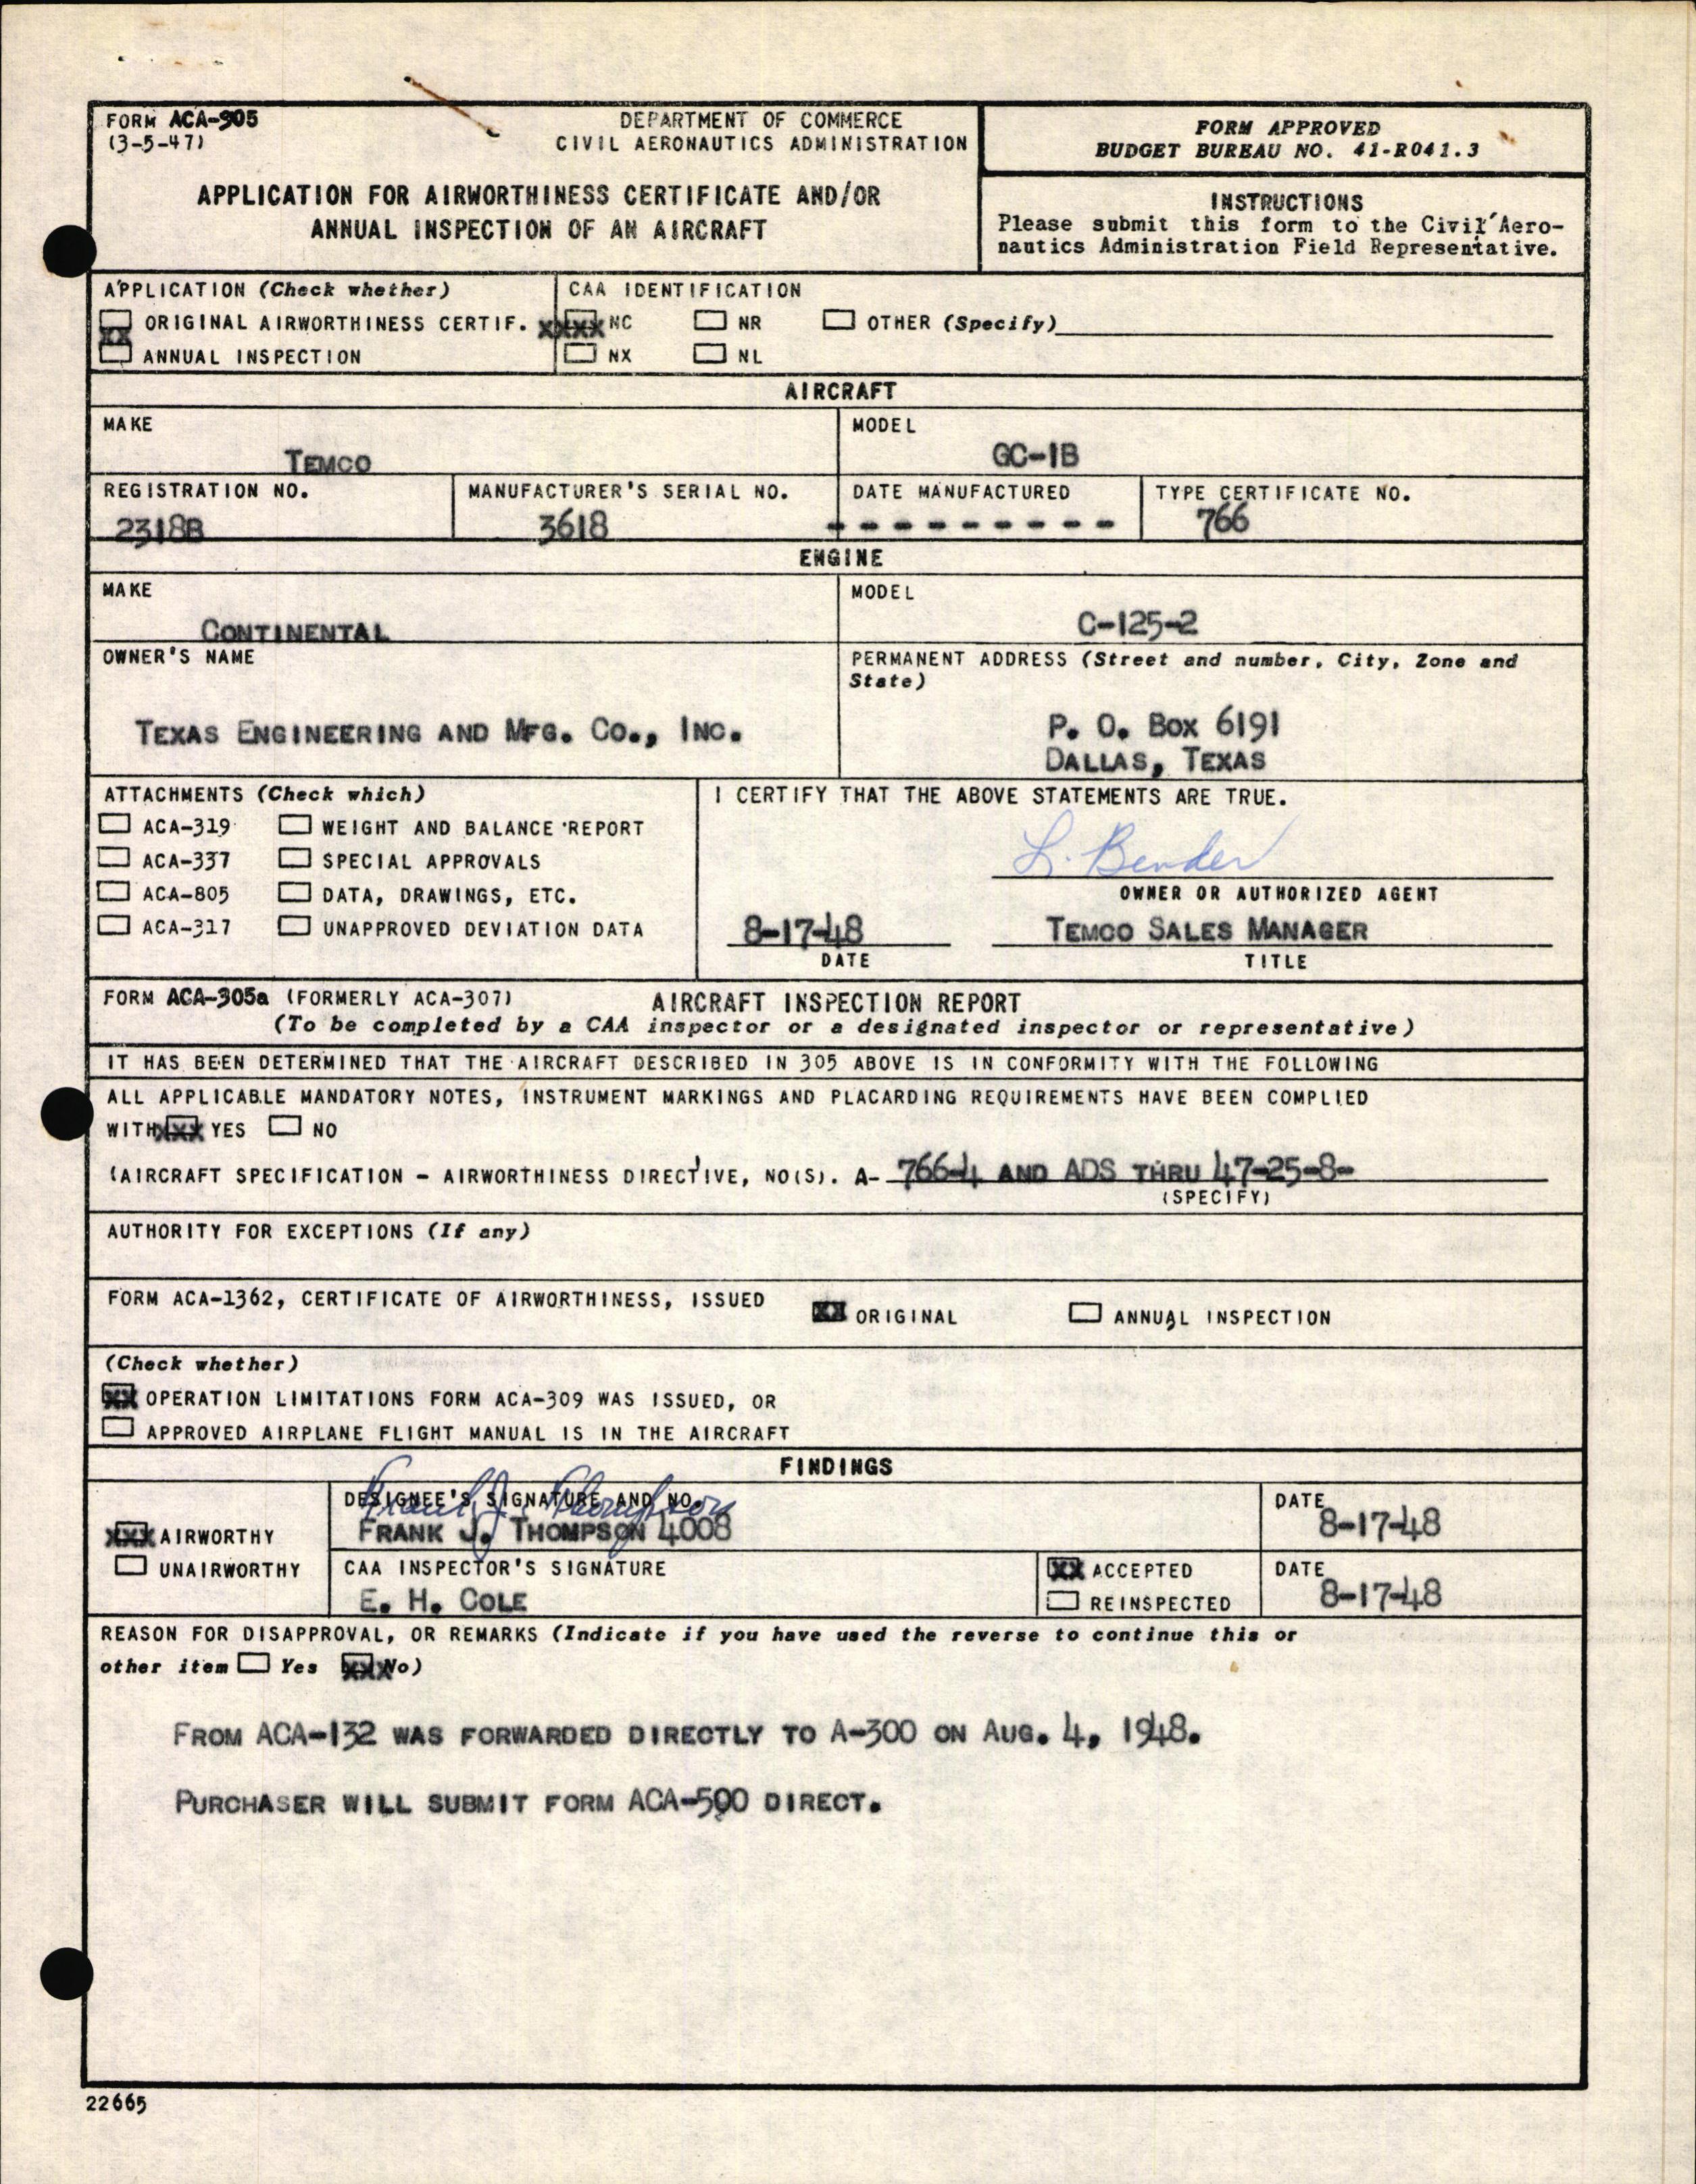 FORM ACA-305
(3-5-47)
DEPARTMENT OF COMMERCE
CIVIL AERONAUTICS ADMINISTRATION
APPLICATION FOR AIRWORTHINESS CERTIFICATE AND/OR
ANNUAL INSPECTION OF AN AIRCRAFT
FORM APPROVED
BUDGET BUREAU NO. 41-R041.3
INSTRUCTIONS
Please submit this form to the Civil Aero-
nautics Administration Field Representative.
APPLICATION (Check whether)
XX ORIGINAL AIRWORTHINESS CERTIF.
ANNUAL INSPECTION
CAA IDENTIFICATION
XXXX NC NR OTHER (Specify)
NX NL
AIRCRAFT
MAKE
TEMCO
MODEL
GC-1B
REGISTRATION NO.
2318B
MANUFACTURER'S SERIAL NO.
3618
DATE MANUFACTURED
- - - - - - - - - -
TYPE CERTIFICATE NO.
766
ENGINE
MAKE
CONTINENTAL
MODEL
C-125-2
OWNER'S NAME
TEXAS ENGINEERING AND MFG. CO., INC.
PERMANENT ADDRESS (Street and number, City, Zone and
State)
P. O. BOX 6191
DALLAS, TEXAS
ATTACHMENTS (Check which)
ACA-319 WEIGHT AND BALANCE REPORT
ACA-337 SPECIAL APPROVALS
ACA-805 DATA, DRAWINGS, ETC.
ACA-317 UNAPPROVED DEVIATION DATA
I CERTIFY THAT THE ABOVE STATEMENTS ARE TRUE.
L. Bender
OWNER OR AUTHORIZED AGENT
8-17-48 TEMCO SALES MANAGER
DATE TITLE
FORM ACA-305a (FORMERLY ACA-307) AIRCRAFT INSPECTION REPORT
(To be completed by a CAA inspector or a designated inspector or representative)
IT HAS BEEN DETERMINED THAT THE AIRCRAFT DESCRIBED IN 305 ABOVE IS IN CONFORMITY WITH THE FOLLOWING
ALL APPLICABLE MANDATORY NOTES, INSTRUMENT MARKINGS AND PLACARDING REQUIREMENTS HAVE BEEN COMPLIED
WITH XXX YES NO
(AIRCRAFT SPECIFICATION - AIRWORTHINESS DIRECTIVE, NO(S). A- 766-4 AND ADS THRU 47-25-8-
(SPECIFY)
AUTHORITY FOR EXCEPTIONS (If any)
FORM ACA-1362, CERTIFICATE OF AIRWORTHINESS, ISSUED XX ORIGINAL ANNUAL INSPECTION
(Check whether)
XX OPERATION LIMITATIONS FORM ACA-309 WAS ISSUED, OR
APPROVED AIRPLANE FLIGHT MANUAL IS IN THE AIRCRAFT
FINDINGS
XXX AIRWORTHY
UNAIRWORTHY
DESIGNEE'S SIGNATURE AND NO.
Frank J. Thompson
FRANK J. THOMPSON 4008
DATE
8-17-48
CAA INSPECTOR'S SIGNATURE
E. H. COLE
XX ACCEPTED
REINSPECTED
DATE
8-17-48
REASON FOR DISAPPROVAL, OR REMARKS (Indicate if you have used the reverse to continue this or
other item Yes XXX No)
FROM ACA-132 WAS FORWARDED DIRECTLY TO A-300 ON AUG. 4, 1948.
PURCHASER WILL SUBMIT FORM ACA-500 DIRECT.
22665